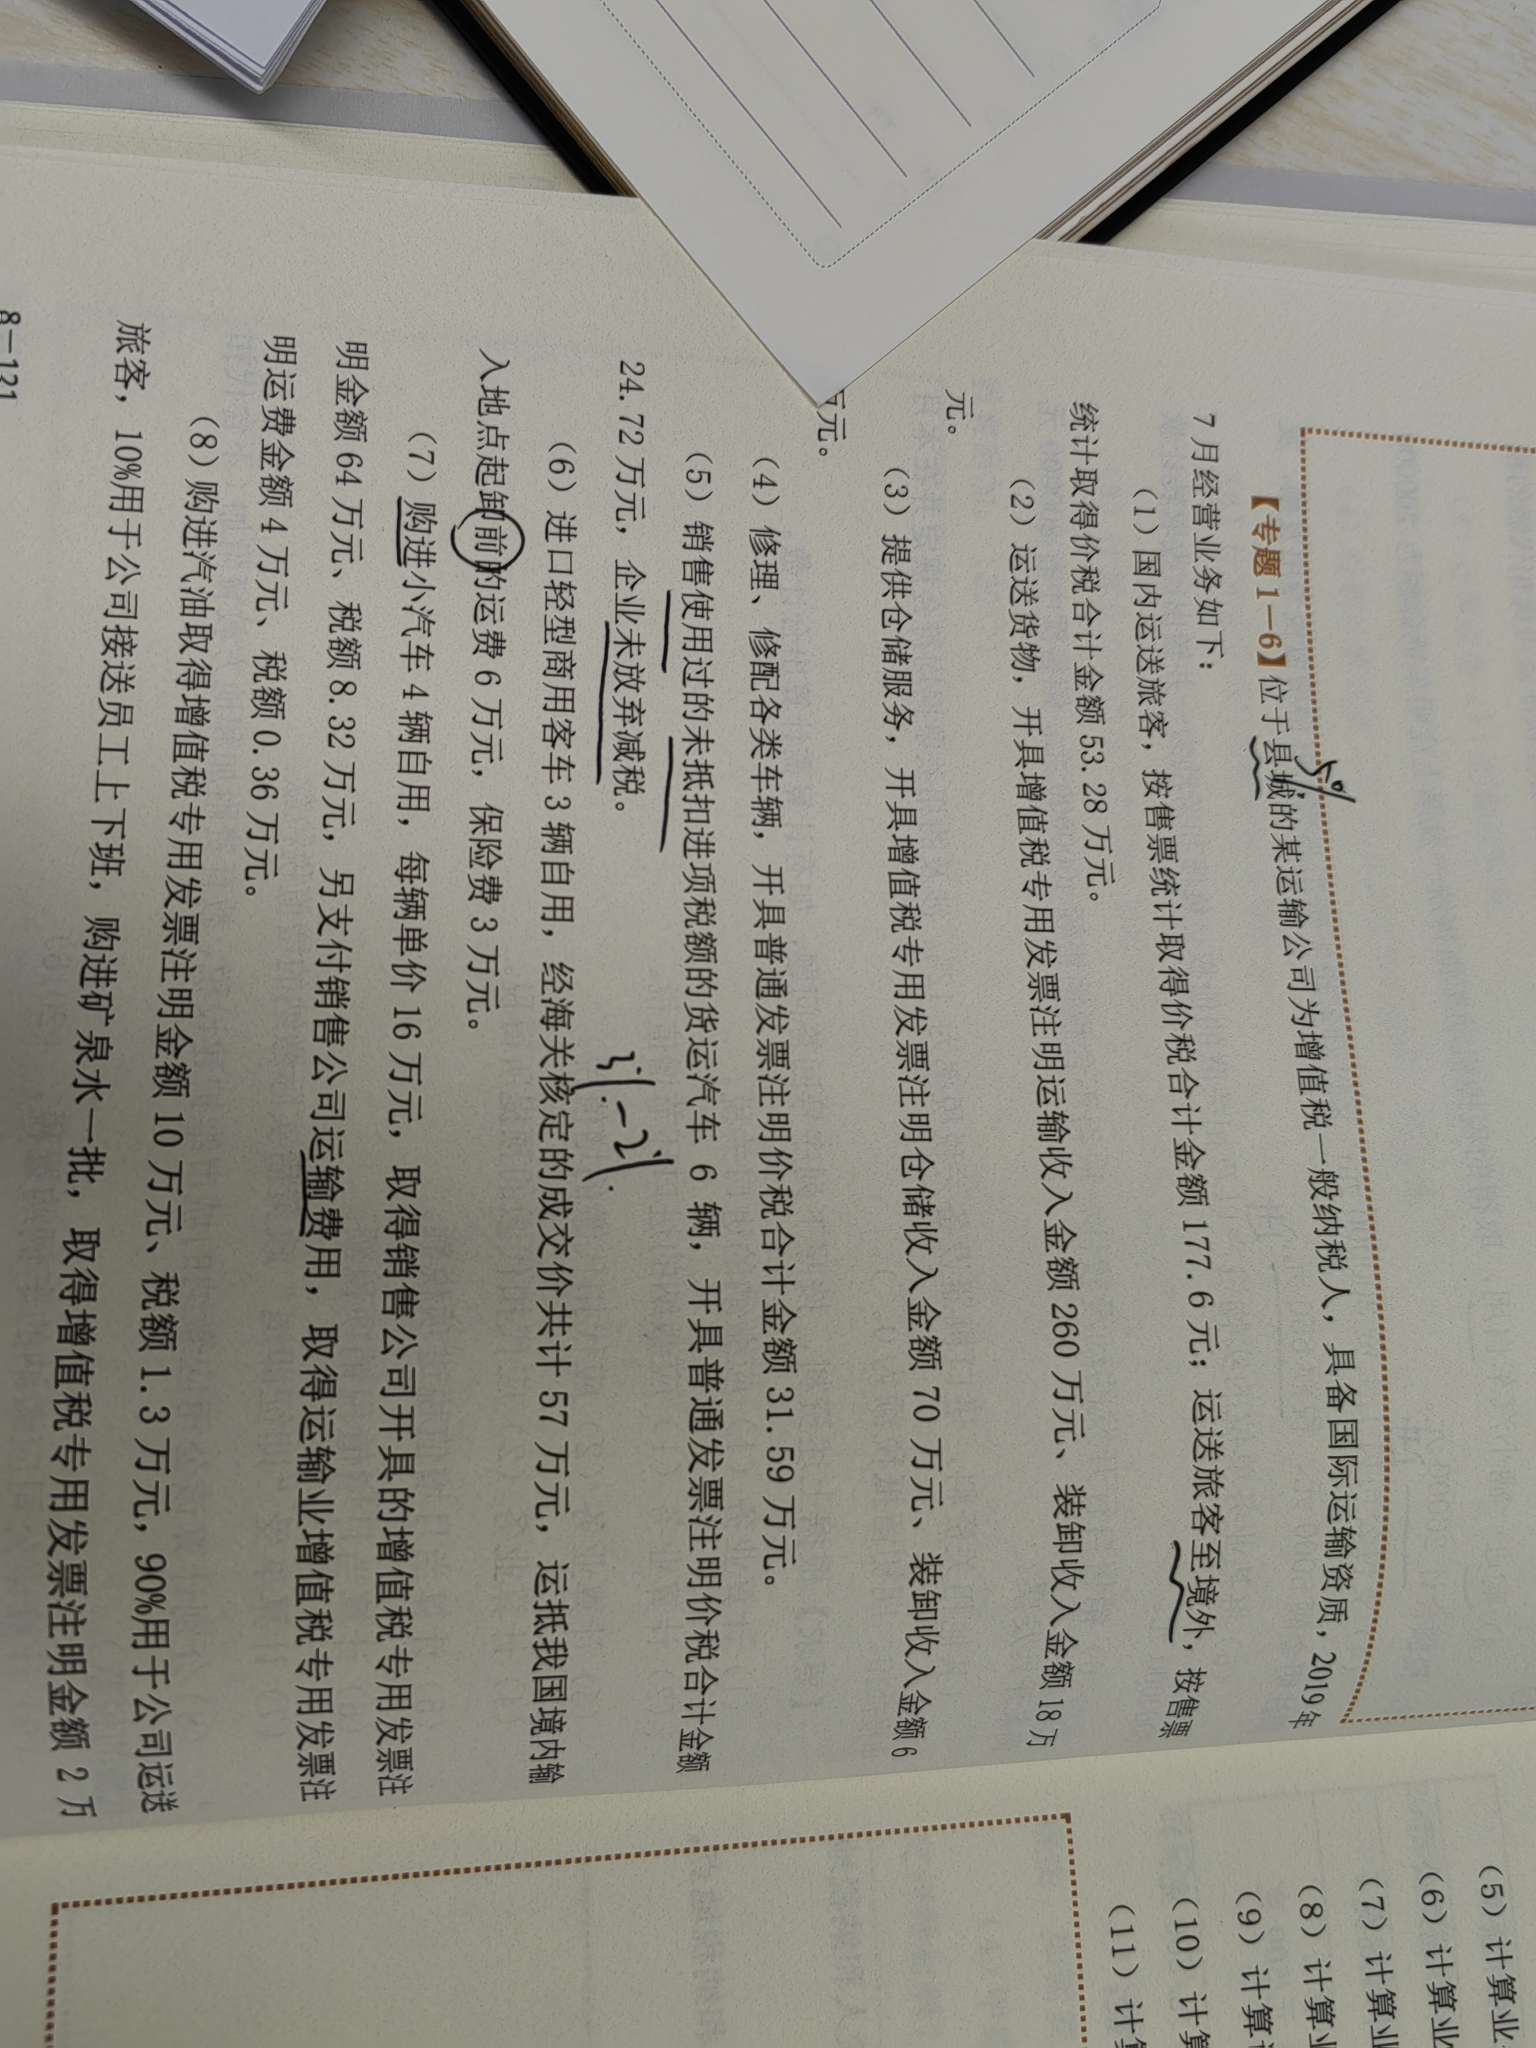 【专题 1-6】位于县城的某运输公司为增值税一般纳税人，具备国际运输资质，2019年
5%
7月经营业务如下：
（1）国内运送旅客，按售票统计取得价税合计金额 177.6 元；运送旅客至境外，按售票
统计取得价税合计金额 53.28 万元。
（2）运送货物，开具增值税专用发票注明运输收入金额 260 万元、装卸收入金额 18 万
元。
（3）提供仓储服务，开具增值税专用发票注明仓储收入金额 70 万元、装卸收入金额 6
万元。
（4）修理、修配各类车辆，开具普通发票注明价税合计金额 31.59 万元。
（5）销售使用过的未抵扣进项税额的货运汽车 6 辆，开具普通发票注明价税合计金额
24.72 万元，企业未放弃减税。
3%-2%
（6）进口轻型商用客车 3 辆自用，经海关核定的成交价共计 57 万元，运抵我国境内输
入地点起卸前的运费 6 万元，保险费 3 万元。
（7）购进小汽车 4 辆自用，每辆单价 16 万元，取得销售公司开具的增值税专用发票注
明金额 64 万元、税额 8.32 万元，另支付销售公司运输费用，取得运输业增值税专用发票注
明运费金额 4 万元、税额 0.36 万元。
（8）购进汽油取得增值税专用发票注明金额 10 万元、税额 1.3 万元，90%用于公司运送
旅客，10%用于公司接送员工上下班，购进矿泉水一批，取得增值税专用发票注明金额 2 万
8-121
（5）计算业
（6）计算业
（7）计算业
（8）计算业
（9）计算
（10）计算
（11）计